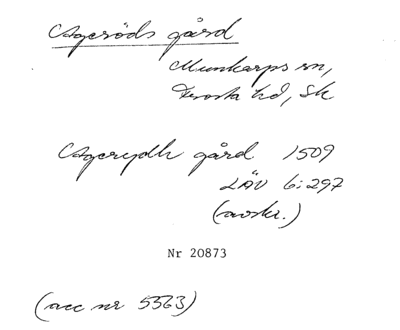 Agesöds gård
Munkarps sn,
Frosta hd, Sk
Agerydh gård 1509
LÄU 6:297
(avskr.)
Nr 20873
(acc nr 5363)